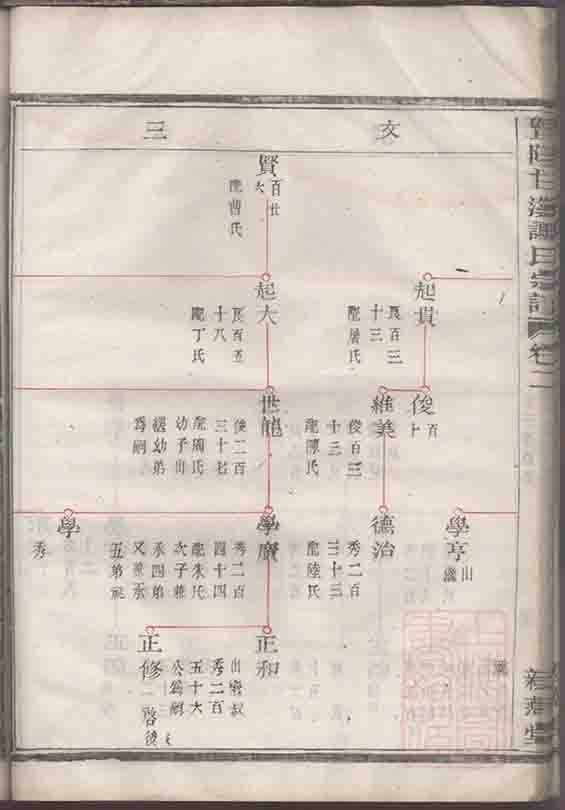 謝氏宗譜
卷二
文三
起貴
良百三
十三
配屠氏
俊
百
十
維美
俊百三
十三
配陳氏
學亨
出
繼
德治
秀二百
三十三
配陸氏
賢
百廿
六
配曹氏
起大
良百五
十八
配丁氏
世龍
俊二百
三十七
配周氏
幼子出
繼幼弟
為嗣
學廣
秀二百
四十四
配朱氏
次子兼
承四弟
又兼承
五弟祀
學
秀
正和
出房叔
秀二百
五十六
公為嗣
正修
二
啓後